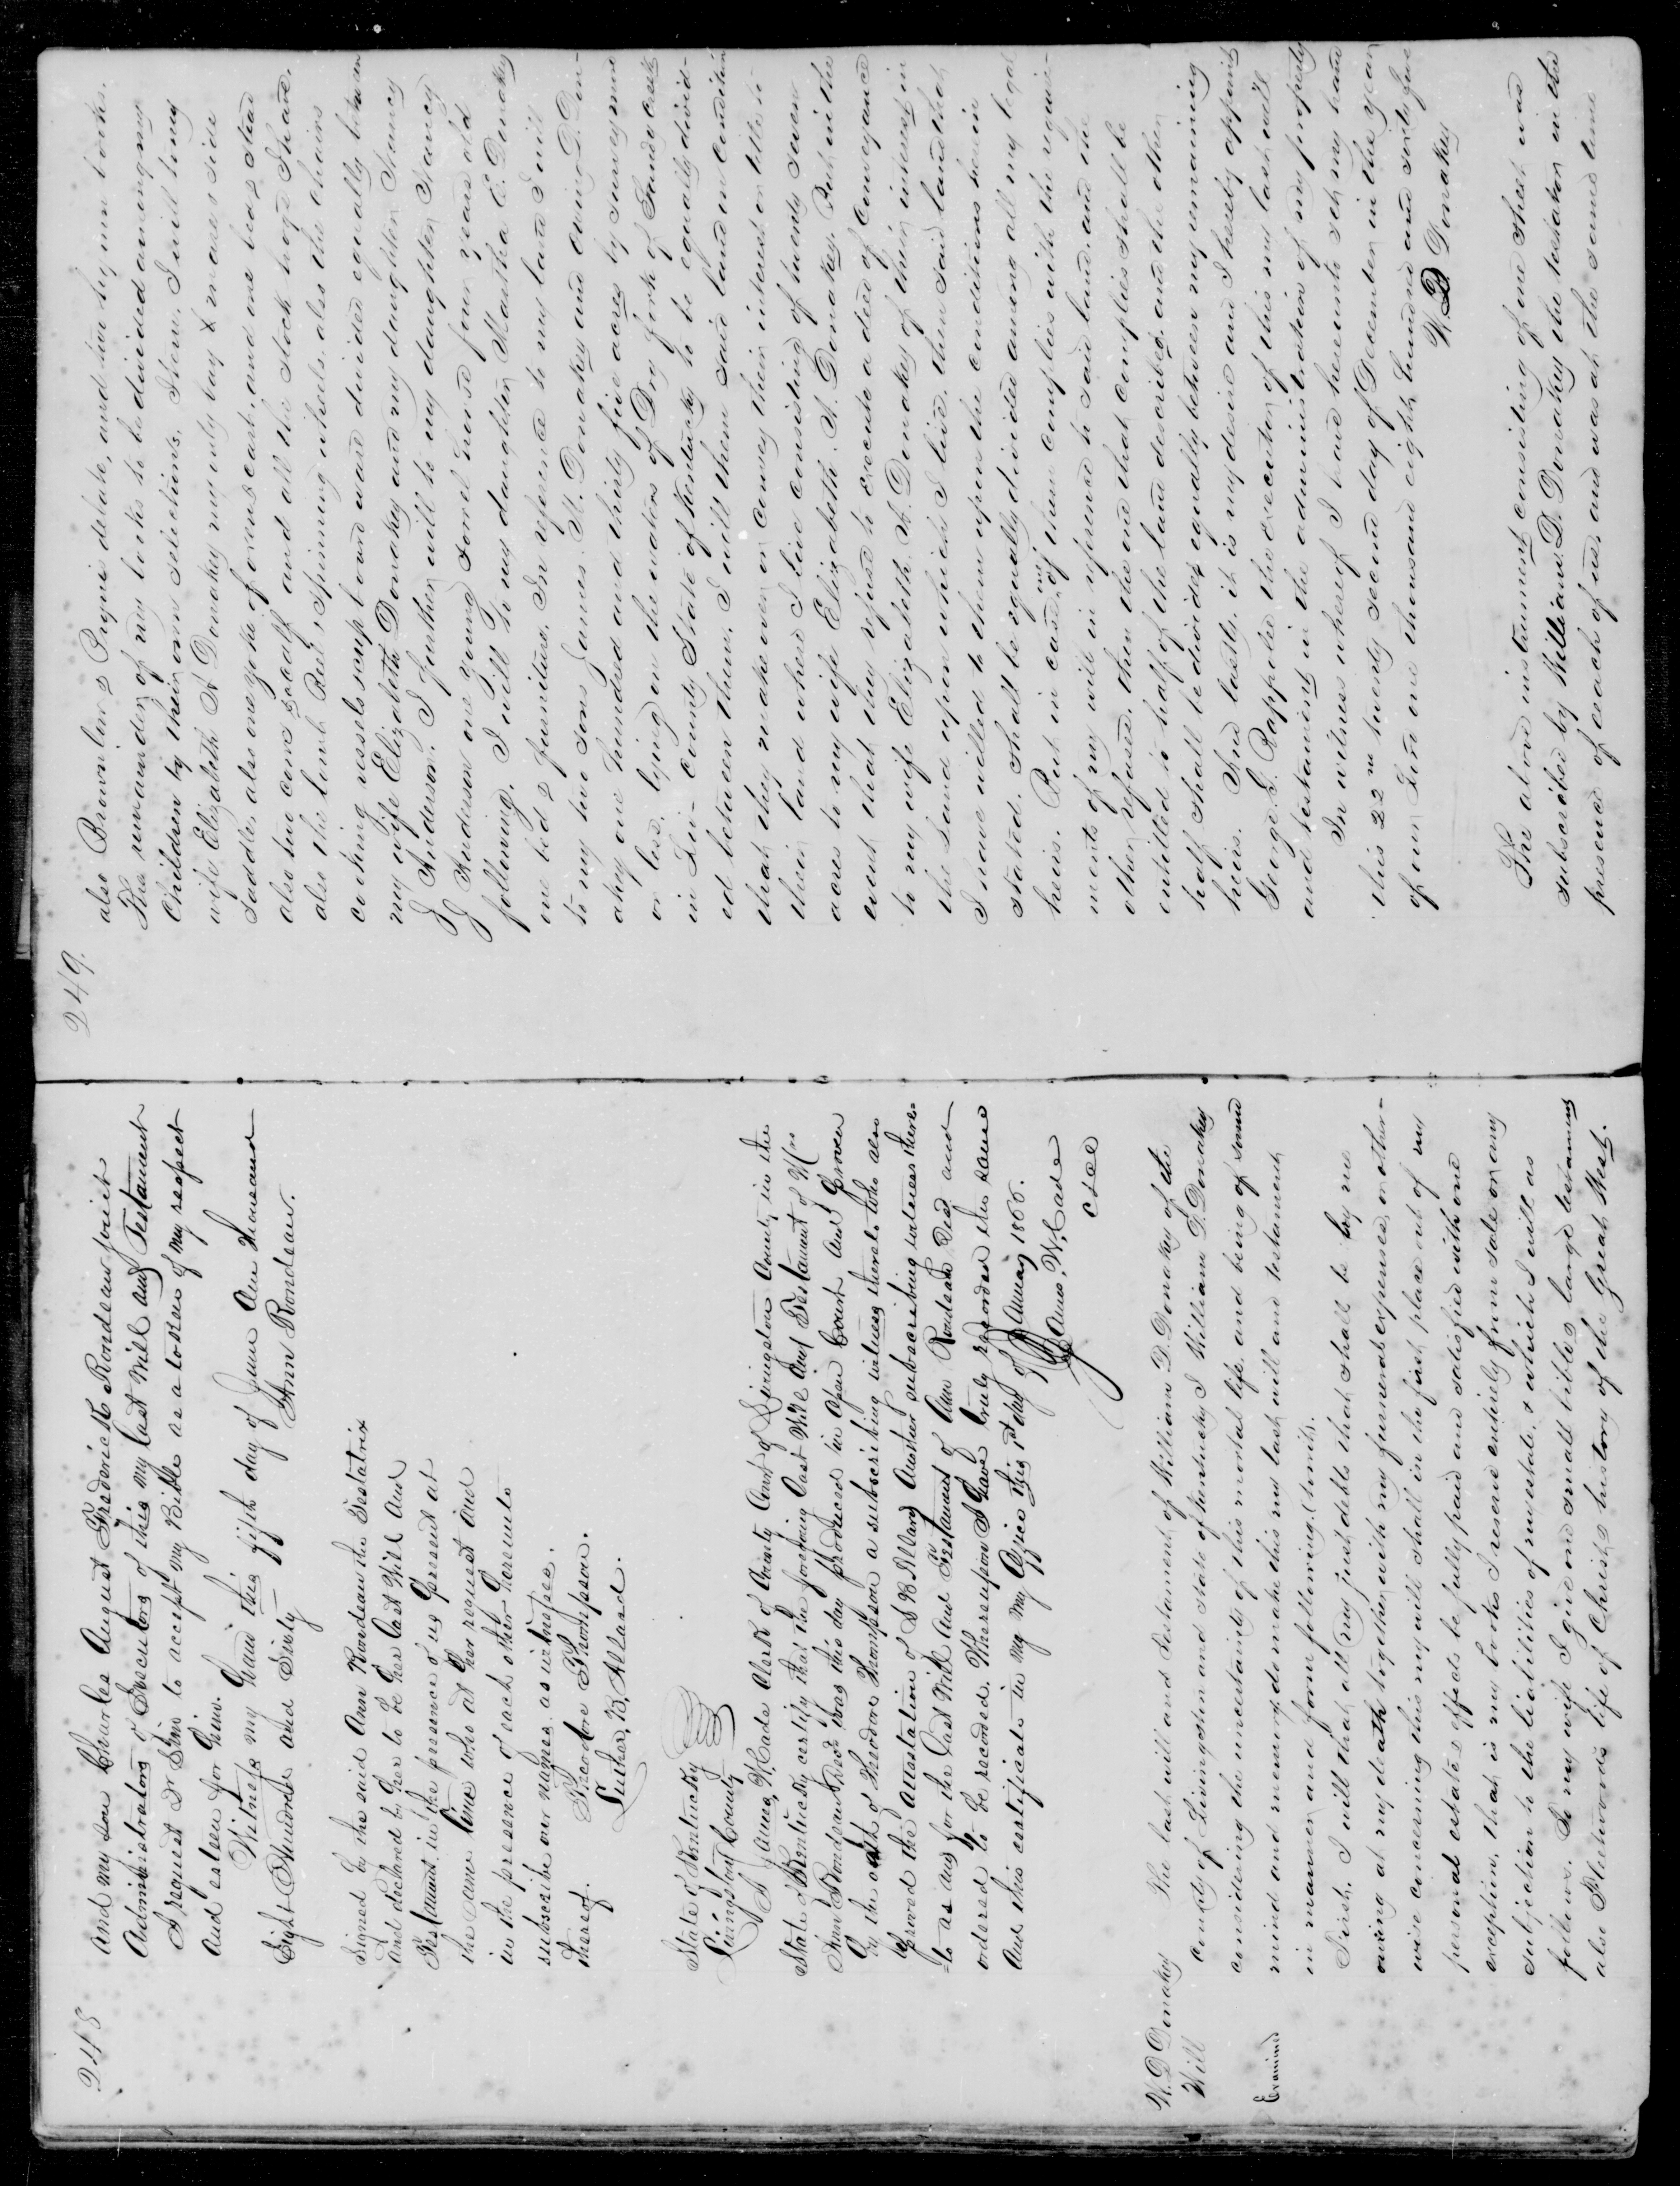 248
And my son Charles August Frederick Rondeau joint
Administrators & Executors of this my last Will and Testament
I request Dr Sim to accept my Bible as a token of my respect
And esteem for him.
Witness my hand this fifth day of June One thousand
Eight Hundred and Sixty Ann Rondeau.
Signed by the said Ann Rondeau the Testatrix
And declared by her to be her last Will And
Testament in the presence of us present at
the same time who at her request and
in the presence of each other hereunto
subscribe our names as witnesses
thereof. Theodore Thompson.
Luther, B, Allard.
State of Kentucky
Livingston County
I James W Cade Clerk of County Court of Livingston County in the
State of Kentucky certify that the foregoing Last Will And Testament of Mrs
Ann Rondeau Decd was this day produced in open Court And proven
by the oath of Theodore Thompson a subscribing witness thereto who also
proved the Attestation of L B Allard Another subscribing witness there-
=to as And for the Last Will And Testament of Ann Rondeau Decd And
ordered to be recorded. Whereupon I have truly recorded the same
And this certificate in my Office this 1st day of January 1866.
James, W, Cade
CLCC
W. D Donakey
Will
Examined
The last will and testament of William D. Donakey of the
county of Livingston and state of Kentucky I William D. Donakey
considering the uncertainty of this mortal life, and being of sound
mind and memory, do make this my last will and testament,
in manner and form following, (towit).
First. I will that all my just debts that shall be by me
owing at my death together with my funeral expenses, or other-
wise concerning this my will shall in the first place out of my
personal estate & effects be fully paid and satisfied with one
exception, that is my books I reserve entirely from sale or any
subjection to the liabilities of my estate, & which I will as
follows. To my wife I give one small bible & large testament
also Fleetwoods life of Christ & history of the Great West.
249.
also Brownlow & Pryne debate, and two hymn books.
The remainder of my books to be divided among my
Children by their own selections. Item. I will to my
wife Elizabeth A Donakey my only bay mare & side
saddle, also one yoke of oxens & cart, and one bed & stead
also two cows & calf and all the stock hogs & Shoats.
also the loom Reel & spinning wheels, also the chains
cooking vessels cupboard ward divided equally between
my wife Elizabeth Donakey and my daughter Stancy
J Anderson. I further will to my daughter Stancy
J Anderson one young sorrel horse four years old
following. I will to my daughter Martha E. Donakey
one bed & furniture. In reference to my land I will
to my two sons James. N. Donakey and Edwin D. Don-
akey one hundred and thirty five acres by survey more
or less. lying on the waters of Dry fork of Sandy Creek
in Liv- County State of Kentucky to be equally divid-
ed between them. I will them said land on condition
that they make over or convey their interest or title to
their land where I live consisting of twenty seven
acres to my wife Elizabeth. A. Donakey. But in the
event that they refuse to execute a deed of conveyance
to my wife Elizabeth. A. Donakey of their interest in
the land upon which I live, then said land that
I have willed to them upon the conditions herein
stated. shall be equally divided among all my legal
heirs. But in case one of them complies with the require-
ments of my will in reference to said land, and the
other refused, then the one that complies shall be
entitled to half of the land described, and the other
half shall be divided equally between my remaining
heirs. And lastly, it is my desire and I hereby appoint
George. G. Rappolee the executor of this my last will
and testament in the administration of my property
In witness whereof I have hereunto set my hand
this 22nd twenty second day of December in the year
of our Lord one thousand eight hundred and sixty five
W. D Donakey
The above instrument consisting of one sheet was
subscribed by William D. Donakey the testator in the
presence of each of us, and was at the same time